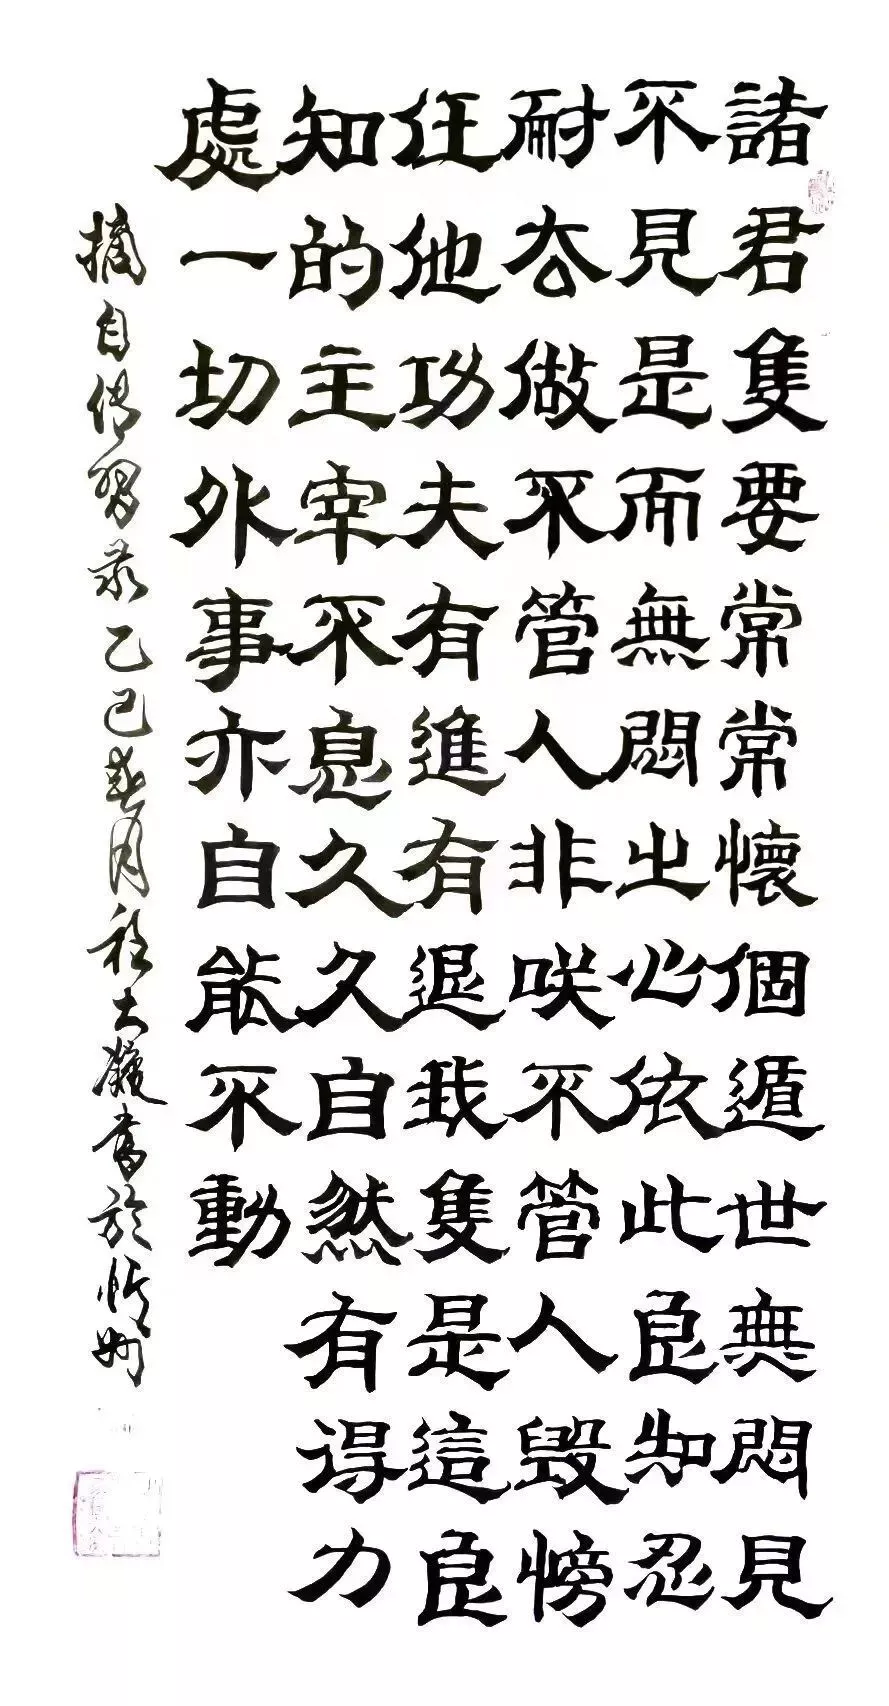 諸君隻要常常懷個遁世無悶見
不見是而無悶之心依此良知忍
耐去做不管人非咲不管人毀謗
任他功夫有進有退我隻是這良
知的主宰不息久久自然有得力
處一切外事亦自能不動
摘自傳習录乙巳月書於忻州